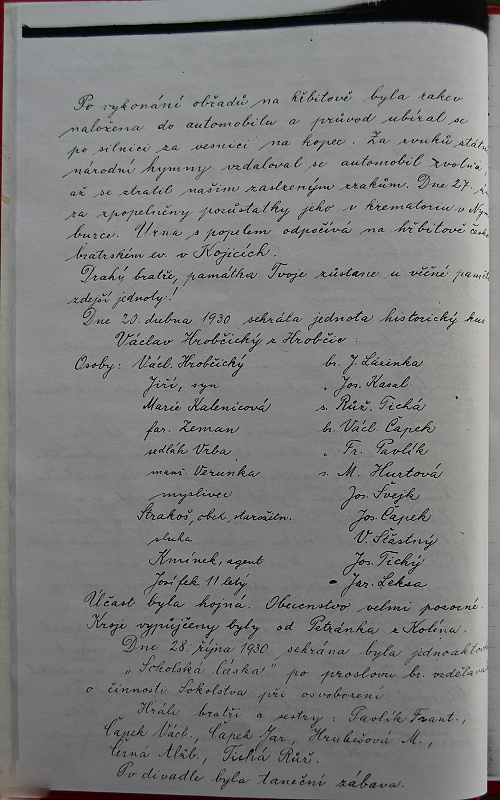 Po vykonání obřadů na hřbitově byla rakev
naložena do automobilu a průvod ubíral se
po silnici za vesnici na kopec. Za zvuků státn
národní hymny vzdaloval se automobil zvolna,
až se ztratil našim zastřeným zrakům. Dne 27.
za zpopelněny pozůstatky jeho v krematoriu v Nym
burce. Urna s popelem odpočívá na hřbitově česko
bratrském ev. v Kojicích.
Drahý bratře, památka Tvoje zůstane u věčné paměti
zdejší jednoty!
Dne 20. dubna 1930 sehrála jednota historický kus
Václav Hrobčický z Hrobčic.
Osoby: Václ. Hrobčický br. J. Lázinka
Jiří, syn " Jos. Kasal
Marie Kalenicová s. Růž. Tichá
far. Zeman br. Václ. Čapek
sedlák Vrba " Fr. Pavlík
Verunka s. M. Hurtová
myslivec Jos. Švejk
Strakoš, obec. starožitn. Jos. Čapek
sluha V. Šťastný
Kmínek, agent Jos. Tichý
Josífek 11 letý Jar. Leksa
Účast byla hojná. Obecenstvo velmi pozorné.
Kroje vypůjčeny byly od Petránka z Kolína.
Dne 28. října 1930 sehrána byla jednoaktov
"Sokolská láska" po proslovu br. vzdělava
o činnosti Sokolstva při osvobození.
Hráli bratři a sestry: Pavlík Frant.,
Čapek Václ., Čapek Jar., Hrubešová M.,
Černá Alžb., Tichá Růž.
Po divadle byla taneční zábava.